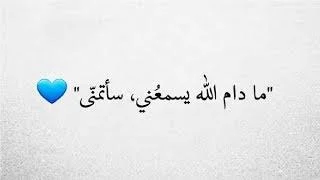 "ما دام الله يسمعُني، سأتمنّى" 💙